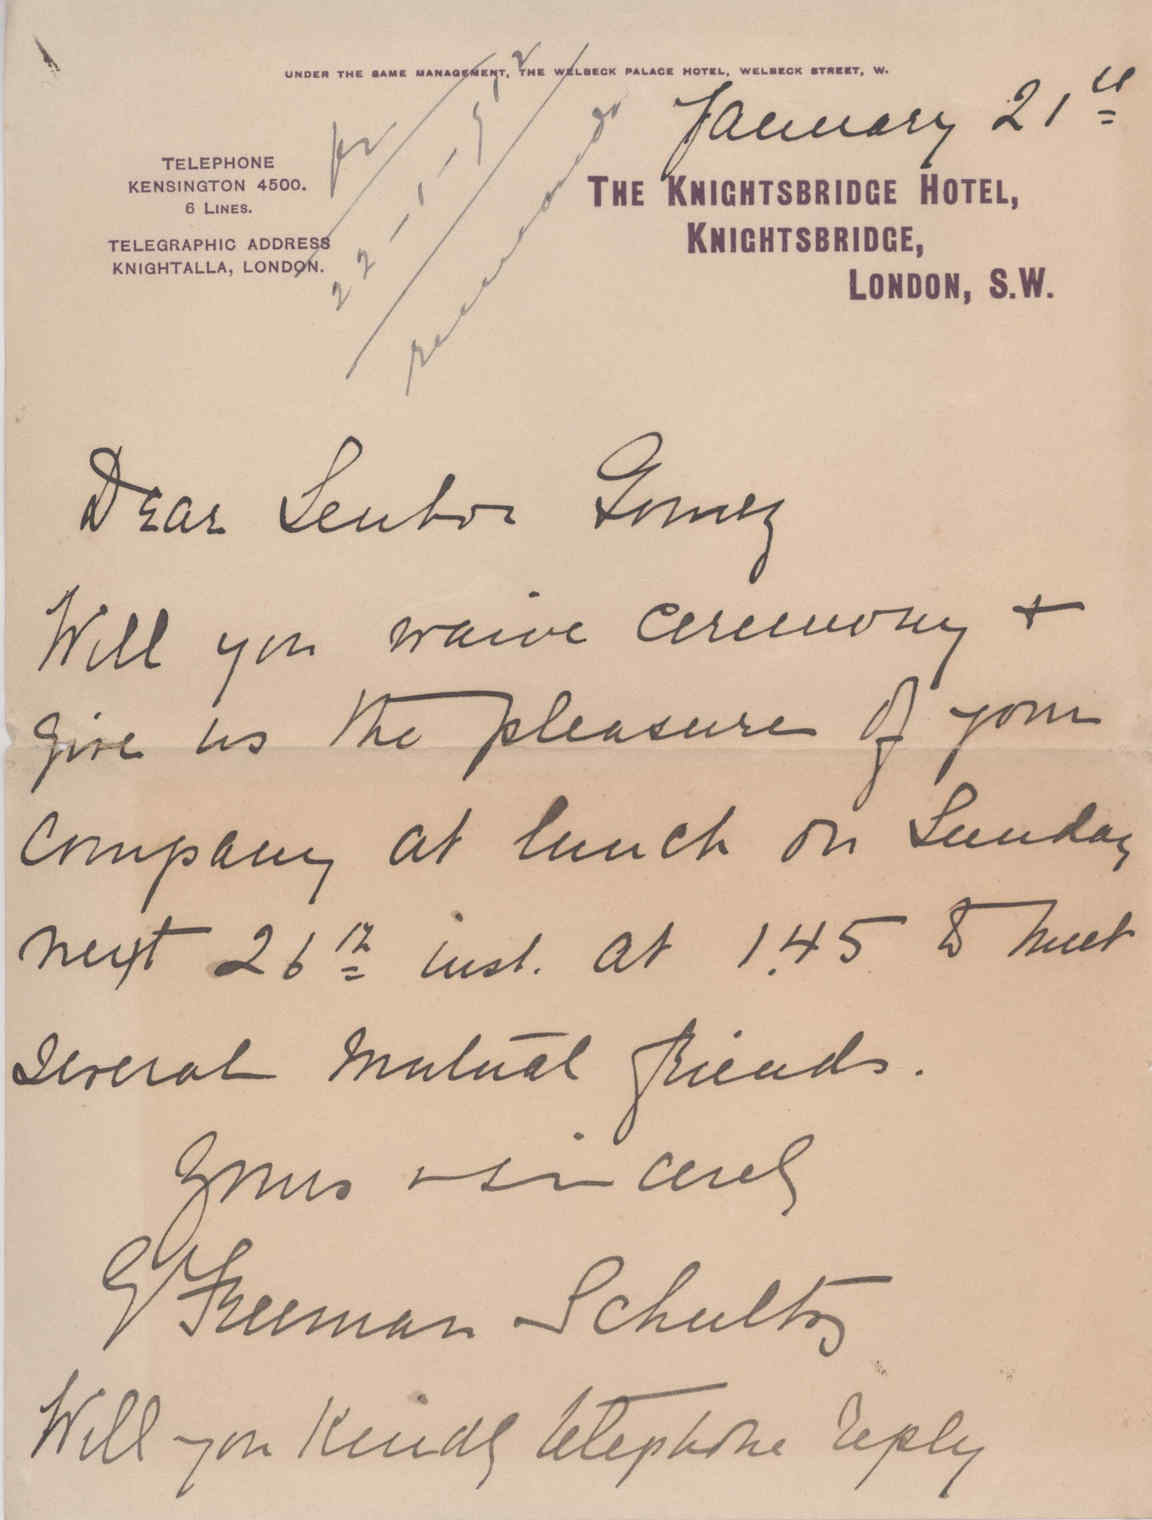 UNDER THE SAME MANAGEMENT, THE WELBECK PALACE HOTEL, WELBECK STREET, W.
January 21st
TELEPHONE
KENSINGTON 4500.
6 LINES.
TELEGRAPHIC ADDRESS
KNIGHTALLA, LONDON.
22-1-912
THE KNIGHTSBRIDGE HOTEL,
KNIGHTSBRIDGE,
LONDON, S.W.
Dear Senhor Gomez
Will you waive ceremony +
give us the pleasure of your
company at lunch on Sunday
next 26th inst. at 1.45 to meet
several mutual friends.
Yours sincerely
G Freeman Schultz
Will you kindly telephone reply